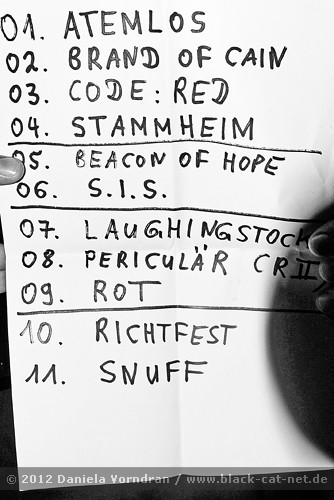 01. ATEMLOS
02. BRAND OF CAIN
03. CODE: RED
04. STAMMHEIM
05. BEACON OF HOPE
06. S.I.S.
07. LAUGHINGSTOCK
08. PERICULÄR CR II,
09. ROT
10. RICHTFEST
11. SNUFF
© 2012 Daniela Vorndran / www.black-cat-net.de